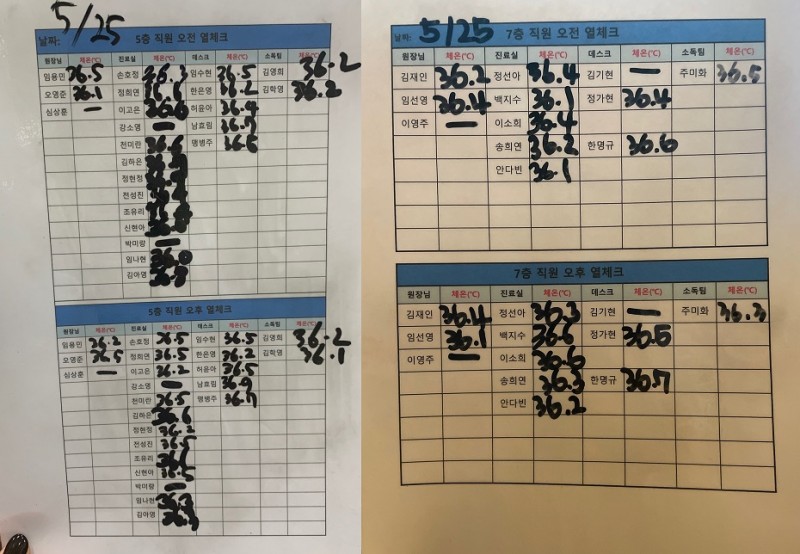 5/25
날짜: 5층 직원 오전 열체크
원장님 체온(℃) 진료실 체온(℃) 데스크 체온(℃) 소독팀 체온(℃)
임용민 36.5 손호정 36.3 임수현 36.5 김영희 36.2
오영준 36.1 정희연 한은영 36.2 김학영 36.2
심상훈 - 이고은 36.6 허윤아 36.4
강소영 - 남효림 36.7
천미란 36.6 맹병주 36.6
김하은
정현정
전성진
조유리
신현아
박미랑 -
임나현 36.0
김아영
5층 직원 오후 열체크
원장님 체온(℃) 진료실 체온(℃) 데스크 체온(℃) 소독팀 체온(℃)
임용민 36.2 손호정 36.5 임수현 36.5 김영희 36.2
오영준 36.5 정희연 36.5 한은영 36.2 김학영 36.1
심상훈 - 이고은 36.2 허윤아 36.5
강소영 - 남효림 36.9
천미란 36.5 맹병주 36.7
김하은 36.6
정현정 36.2
전성진 36.5
조유리
신현아 36.5
박미랑 -
임나현 36.3
김아영 36.3
날짜: 5/25 7층 직원 오전 열체크
원장님 체온(℃) 진료실 체온(℃) 데스크 체온(℃) 소독팀 체온(℃)
김재인 36.2 정선아 36.4 김기현 - 주미화 36.5
임선영 36.4 백지수 36.1 정가현 36.4
이영주 - 이소희 36.4
송희연 36.2 한명규 36.6
안다빈 36.1
7층 직원 오후 열체크
원장님 체온(℃) 진료실 체온(℃) 데스크 체온(℃) 소독팀 체온(℃)
김재인 36.4 정선아 36.3 김기현 - 주미화 36.3
임선영 36.1 백지수 36.6 정가현 36.5
이영주 - 이소희 36.6
송희연 36.3 한명규 36.7
안다빈 36.2